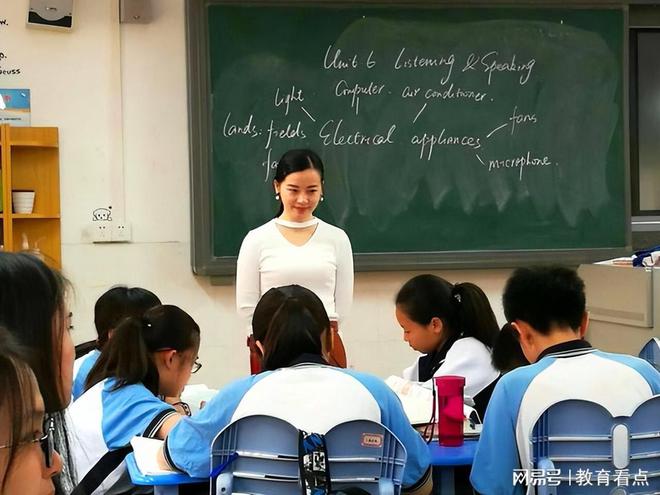 Unit 6 Listening & Speaking
light Computer. air conditioner.
lands: fields Electrical appliances fans
microphone.
网易号 | 教育看点